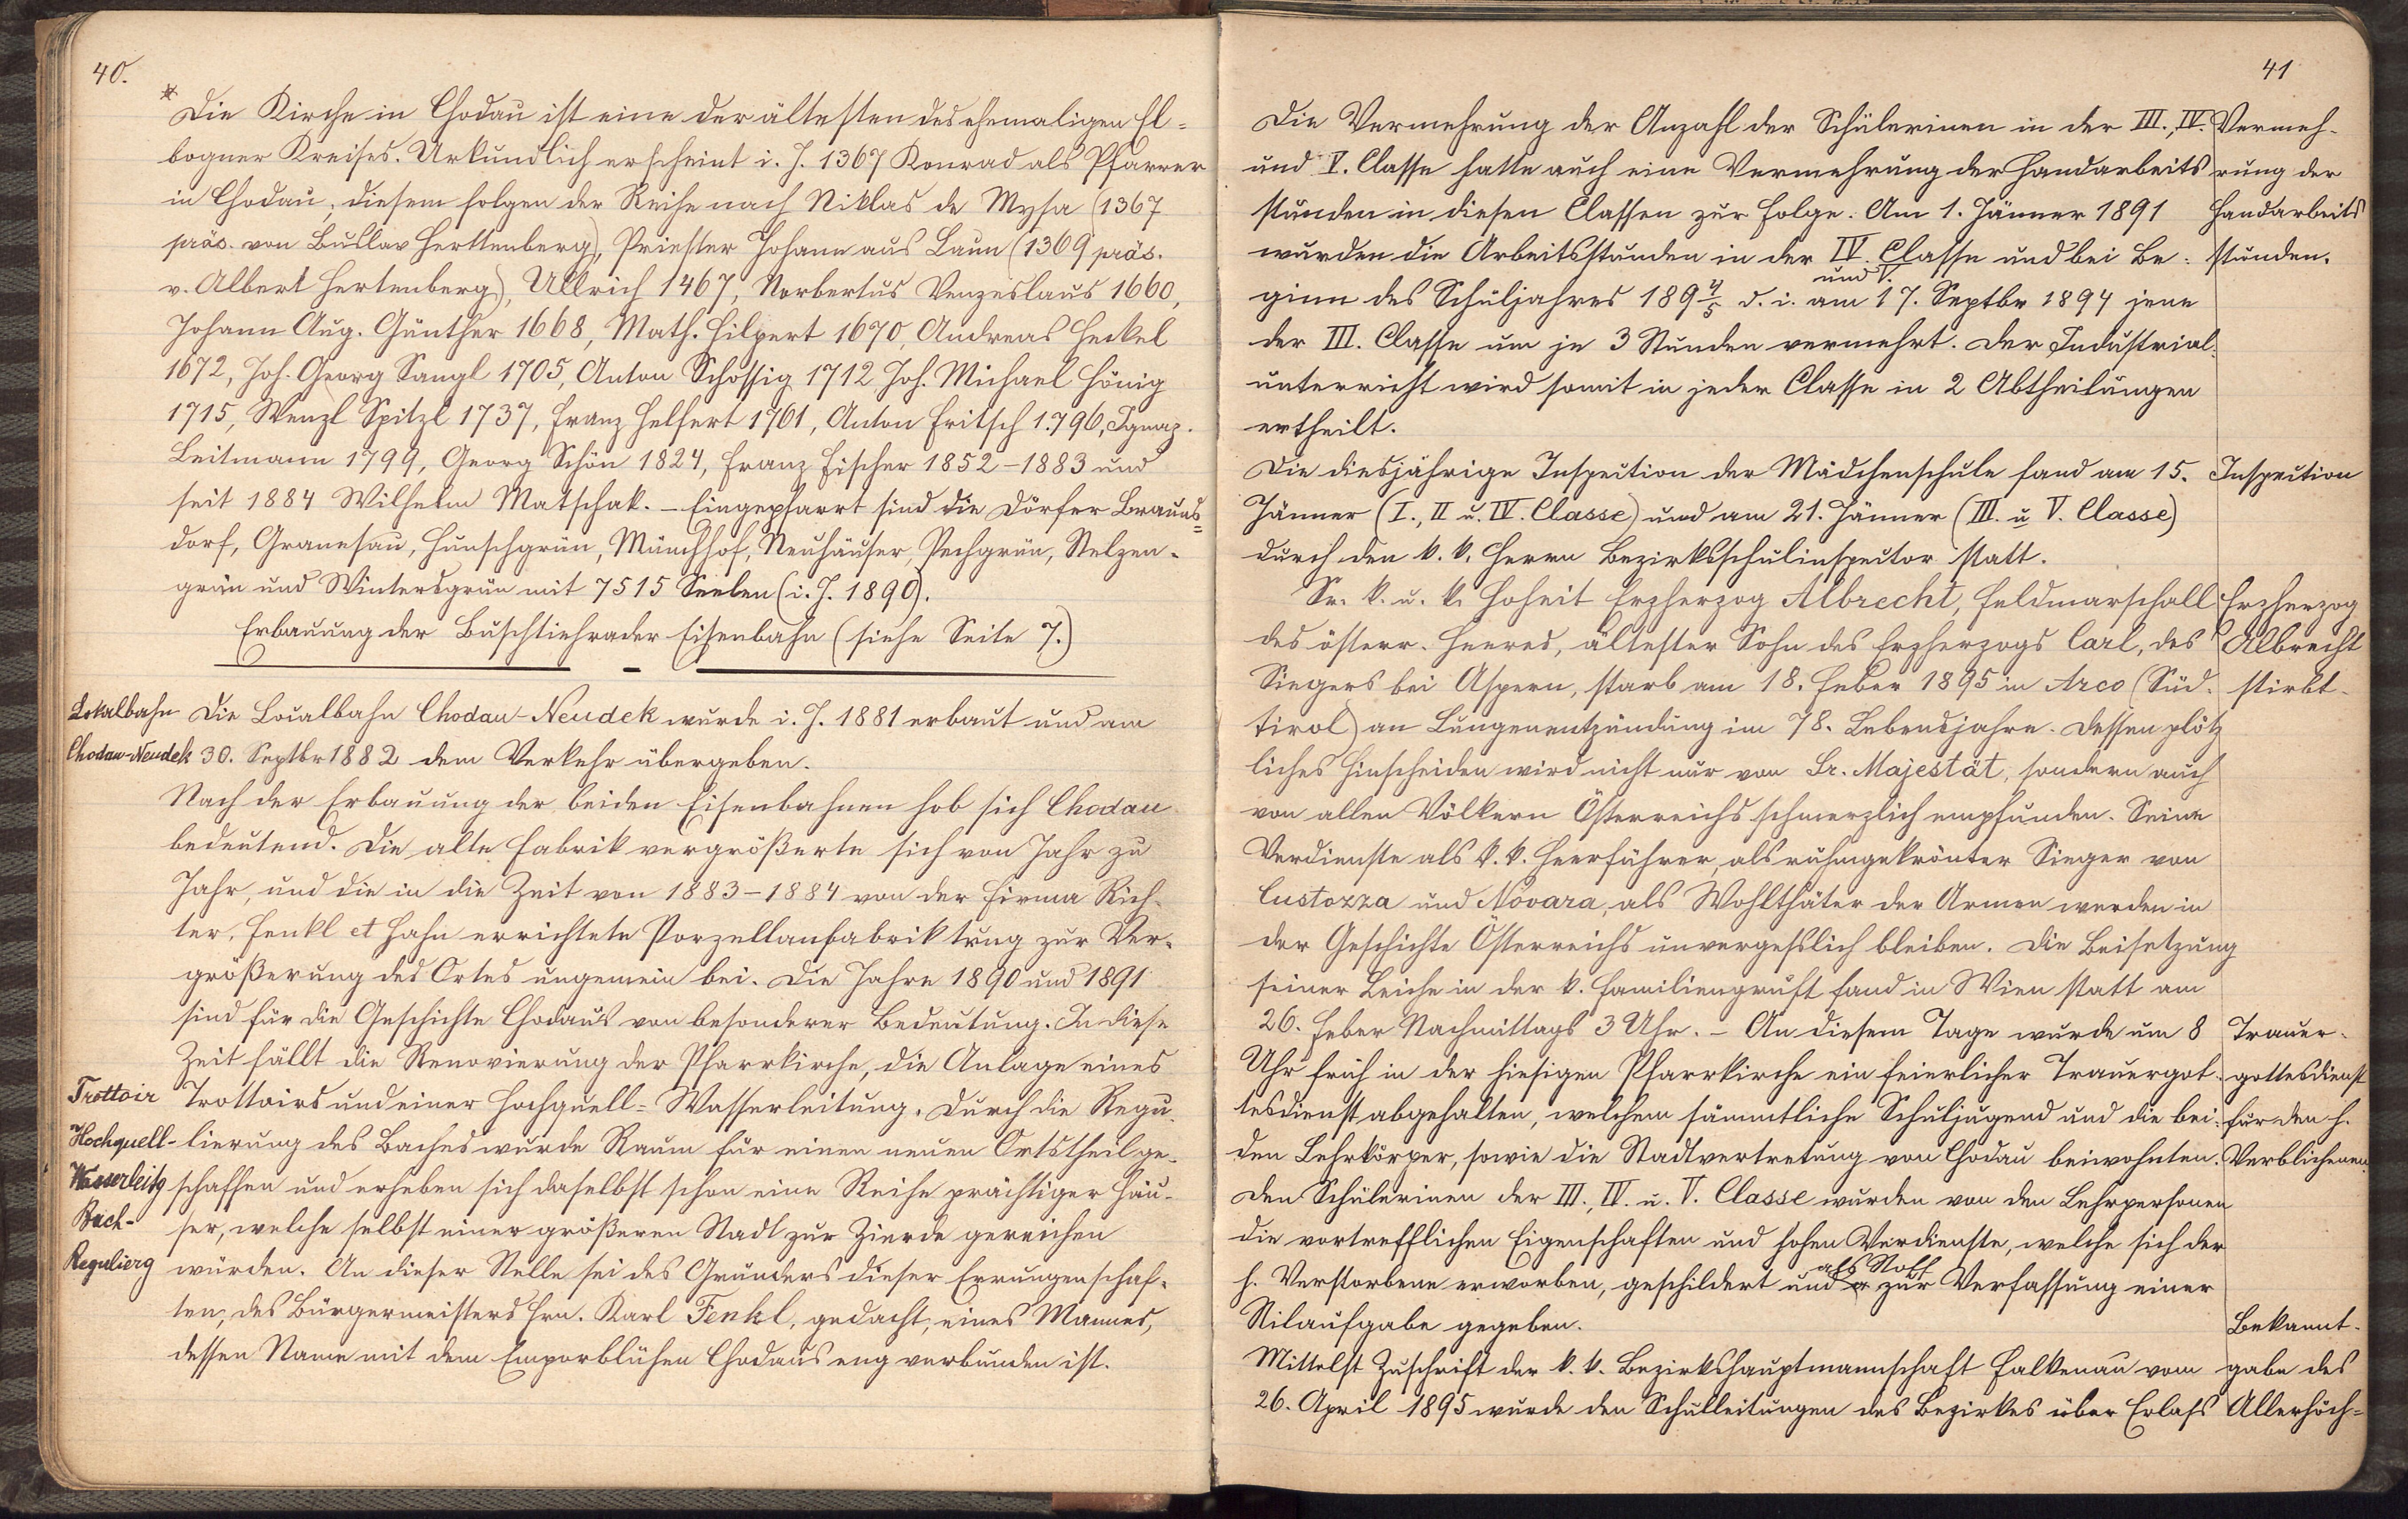 40.
* Die Kirche in Chodau ist eine der ältesten des ehemaligen El=
bogner Kreises. Urkundlich erscheint i. J. 1367 Konrad als Pfarrer
in Chodau; diesem folgen der Reihe nach Niklas de Mysa (1367
präs. von Buslav Herttenberg), Priester Johann aus Laun (1369 präs.
v. Albert Hertenberg), Ullrich 1467, Norbertus Venzeslaus 1660,
Johann Aug. Günther 1668, Math. Hilpert 1670, Andreas Heckel
1672, Joh. Georg Sangl 1705, Anton Schossig 1712 Joh. Michael Hönig
1715, Wenzl Spitzl 1737, Franz Helfert 1761, Anton Fritsch 1796, Ignaz
Leitmann 1799, Georg Schön 1824, Franz Fischer 1852-1883 und
seit 1884 Wilhelm Matschak. – Eingepfarrt sind die Dörfer Brauns=
dorf, Granesau, Hunschgrün, Münchhof, Neuhäuser, Pechgrün, Stelzen-
grün und Wintersgrün mit 7515 Seelen (i. J. 1890).
Erbauung der Buschtiehrader Eisenbahn (siehe Seite 7.)
Lokalbahn Die Localbahn Chodau-Neudek wurde i. J. 1881 erbaut und am
Chodau-Neudek 30. Septbr 1882 dem Verkehr übergeben.
Nach der Erbauung der beiden Eisenbahnen hob sich Chodau
bedeutend. Die alte Fabrik vergrößerte sich von Jahr zu
Jahr, und die in die Zeit von 1883-1884 von der Firma Rich-
ter, Fenkl et Hahn errichtete Porzellanfabrik trug zur Ver-
größerung des Ortes ungemein bei. Die Jahre 1890 und 1891
sind für die Geschichte Chodaus von besonderer Bedeutung. In diese
Zeit fällt die Renovierung der Pfarrkirche, die Anlage eines
Trottoir Trottoirs und einer Hochquell-Wasserleitung. Durch die Regu-
Hochquell- lierung des Baches wurde Raum für einen neuen Ortstheil ge-
Wasserleitg schaffen und erheben sich daselbst schon eine Reihe prächtiger Häu-
Bach- ser, welche selbst einer größeren Stadt zur Zierde gereichen
Regulierg würden. An dieser Stelle sei des Gründers dieser Errungenschaf-
ten, des Bürgermeisters Hrn. Karl Fenkl, gedacht, eines Mannes,
dessen Name mit dem Emporblühen Chodaus eng verbunden ist.
41
Die Vermehrung der Anzahl der Schülerinen in der III., IV. Vermeh-
und V. Classe hatte auch eine Vermehrung der Handarbeits rung der
stunden in diesen Classen zur Folge. Am 1. Jänner 1891 Handarbeits
wurden die Arbeitsstunden in der IV. Classe und bei Be- stunden.
und V.
ginn des Schuljahres 189 4/5 d. i. am 17. Septbr 1894 jene
der III. Classe um je 3 Stunden vermehrt. Der Industrial-
unterricht wird somit in jeder Classe in 2 Abtheilungen
ertheilt.
Die diesjährige Inspection der Mädchenschule fand am 15. Inspection
Jänner (I., II u. IV. Classe) und am 21. Jänner (III. u V. Classe)
durch den k. k. Herrn Bezirksschulinspector statt.
Sr. k. u. k. Hoheit Erzherzog Albrecht, Feldmarschall Erzherzog
des österr. Heeres, ältester Sohn des Erzherzogs Carl, des Albrecht
Siegers bei Aspern, starb am 18. Feber 1895 in Arco (Süd- stirbt.
tirol) an Lungenentzündung im 78. Lebensjahre. Dessen plötz
liches Hinscheiden wird nicht nur von Sr. Majestät, sondern auch
von allen Völkern Österreichs schmerzlich empfunden. Seine
Verdienste als k. k. Heerführer, als ruhmgekrönter Sieger von
Custozza und Novara, als Wohlthäter der Armen werden in
der Geschichte Österreichs unvergesslich bleiben. Die Beisetzung
seiner Leiche in der k. Familiengruft fand in Wien statt am
26. Feber Nachmittags 3 Uhr. – An diesem Tage wurde um 8 Trauer-
Uhr früh in der hiesigen Pfarrkirche ein feierlicher Trauergot- gottesdienst
tesdienst abgehalten, welchem sämmtliche Schuljugend und die bei- für den h.
den Lehrkörper, sowie die Stadtvertretung von Chodau beiwohnten. Verblichenen.
Den Schülerinen der III., IV. u. V. Classe wurden von den Lehrpersonen
die vortrefflichen Eigenschaften und hohen Verdienste, welche sich der
als Stoff
h. Verstorbene erworben, geschildert und zur Verfassung einer
Stilaufgabe gegeben. Bekannt-
Mittelst Zuschrift der k. k. Bezirkshauptmannschaft Falkenau vom gabe des
26. April 1895 wurde den Schulleitungen des Bezirkes über Erlass Allerhöch=